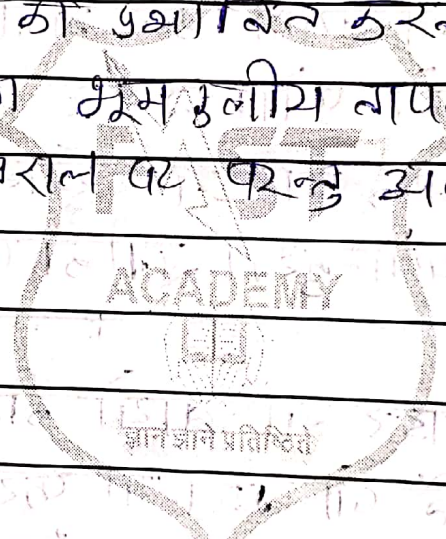 को प्रभावित कर
भूमंडलीय ताप
FAST
पर परन्तु
ACADEMY
ज्ञानं ज्ञाने प्रतिष्ठितं